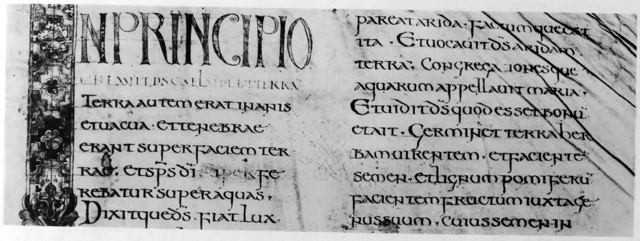 IN PRINCIPIO
CREAVIT DS CAELUM ET TERRA
Terra autem erat inanis
et uacua · et tenebrae
erant super faciem ter
rae · et sps di fe
rebatur super aquas ·
Dixitque ds · fiat lux ·
pareat arida · Factumque est
ita · Et uocauit ds aridam
terra · Congregationesque
aquarum appellauit maria ·
Et uidit ds quod esset bonu
et ait · Germinet terra her
bam uirentem · et faciente
semen · et lignum pomiferu
facientem fructum iuxta ge
nus suum, cuius semen in